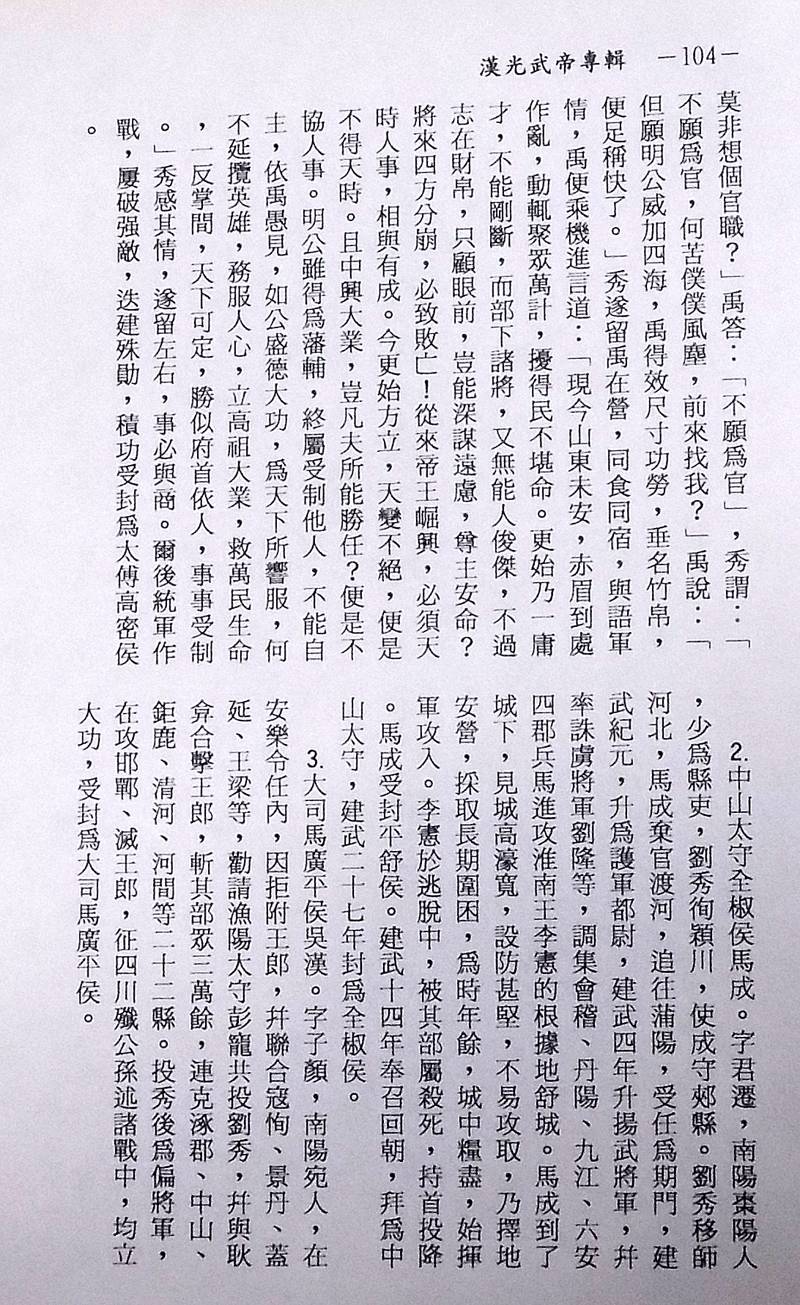 漢光武帝專輯 －104－
莫非想個官職？」禹答：「不願爲官」，秀謂：「
不願爲官，何苦僕僕風塵，前來找我？」禹說：「
但願明公威加四海，禹得效尺寸功勞，垂名竹帛，
便足稱快了。」秀遂留禹在營，同食同宿，與語軍
情，禹便乘機進言道：「現今山東未安，赤眉到處
作亂，動輒聚眾萬計，擾得民不堪命。更始乃一庸
才，不能剛斷，而部下諸將，又無能人俊傑，不過
志在財帛，只顧眼前，豈能深謀遠慮，尊主安命？
將來四方分崩，必致敗亡！從來帝王崛興，必須天
時人事，相與有成。今更始方立，天變不絕，便是
不得天時。且中興大業，豈凡夫所能勝任？便是不
協人事。明公雖得爲藩輔，終屬受制他人，不能自
主，依禹愚見，如公盛德大功，爲天下所響服，何
不延攬英雄，務服人心，立高祖大業，救萬民生命
，一反掌間，天下可定，勝似府首依人，事事受制
。」秀感其情，遂留左右，事必與商。爾後統軍作
戰，屢破强敵，迭建殊勛，積功受封爲太傅高密侯
。
2.中山太守全椒侯馬成。字君遷，南陽棗陽人
，少爲縣吏，劉秀徇穎川，使成守郟縣。劉秀移師
河北，馬成棄官渡河，追往蒲陽，受任爲期門，建
武紀元，升爲護軍都尉，建武四年升揚武將軍，幷
率誅虜將軍劉隆等，調集會稽、丹陽、九江、六安
四郡兵馬進攻淮南王李憲的根據地舒城。馬成到了
城下，見城高濠寬，設防甚堅，不易攻取，乃擇地
安營，採取長期圍困，爲時年餘，城中糧盡，始揮
軍攻入。李憲於逃脫中，被其部屬殺死，持首投降
。馬成受封平舒侯。建武十四年奉召回朝，拜爲中
山太守，建武二十七年封爲全椒侯。
3.大司馬廣平侯吳漢。字子顏，南陽宛人，在
安樂令任內，因拒附王郎，幷聯合寇恂、景丹、蓋
延、王梁等，勸請漁陽太守彭寵共投劉秀，幷與耿
弇合擊王郎，斬其部眾三萬餘，連克涿郡、中山、
鉅鹿、清河、河間等二十二縣。投秀後爲偏將軍，
在攻邯鄲、滅王郎，征四川殲公孫述諸戰中，均立
大功，受封爲大司馬廣平侯。